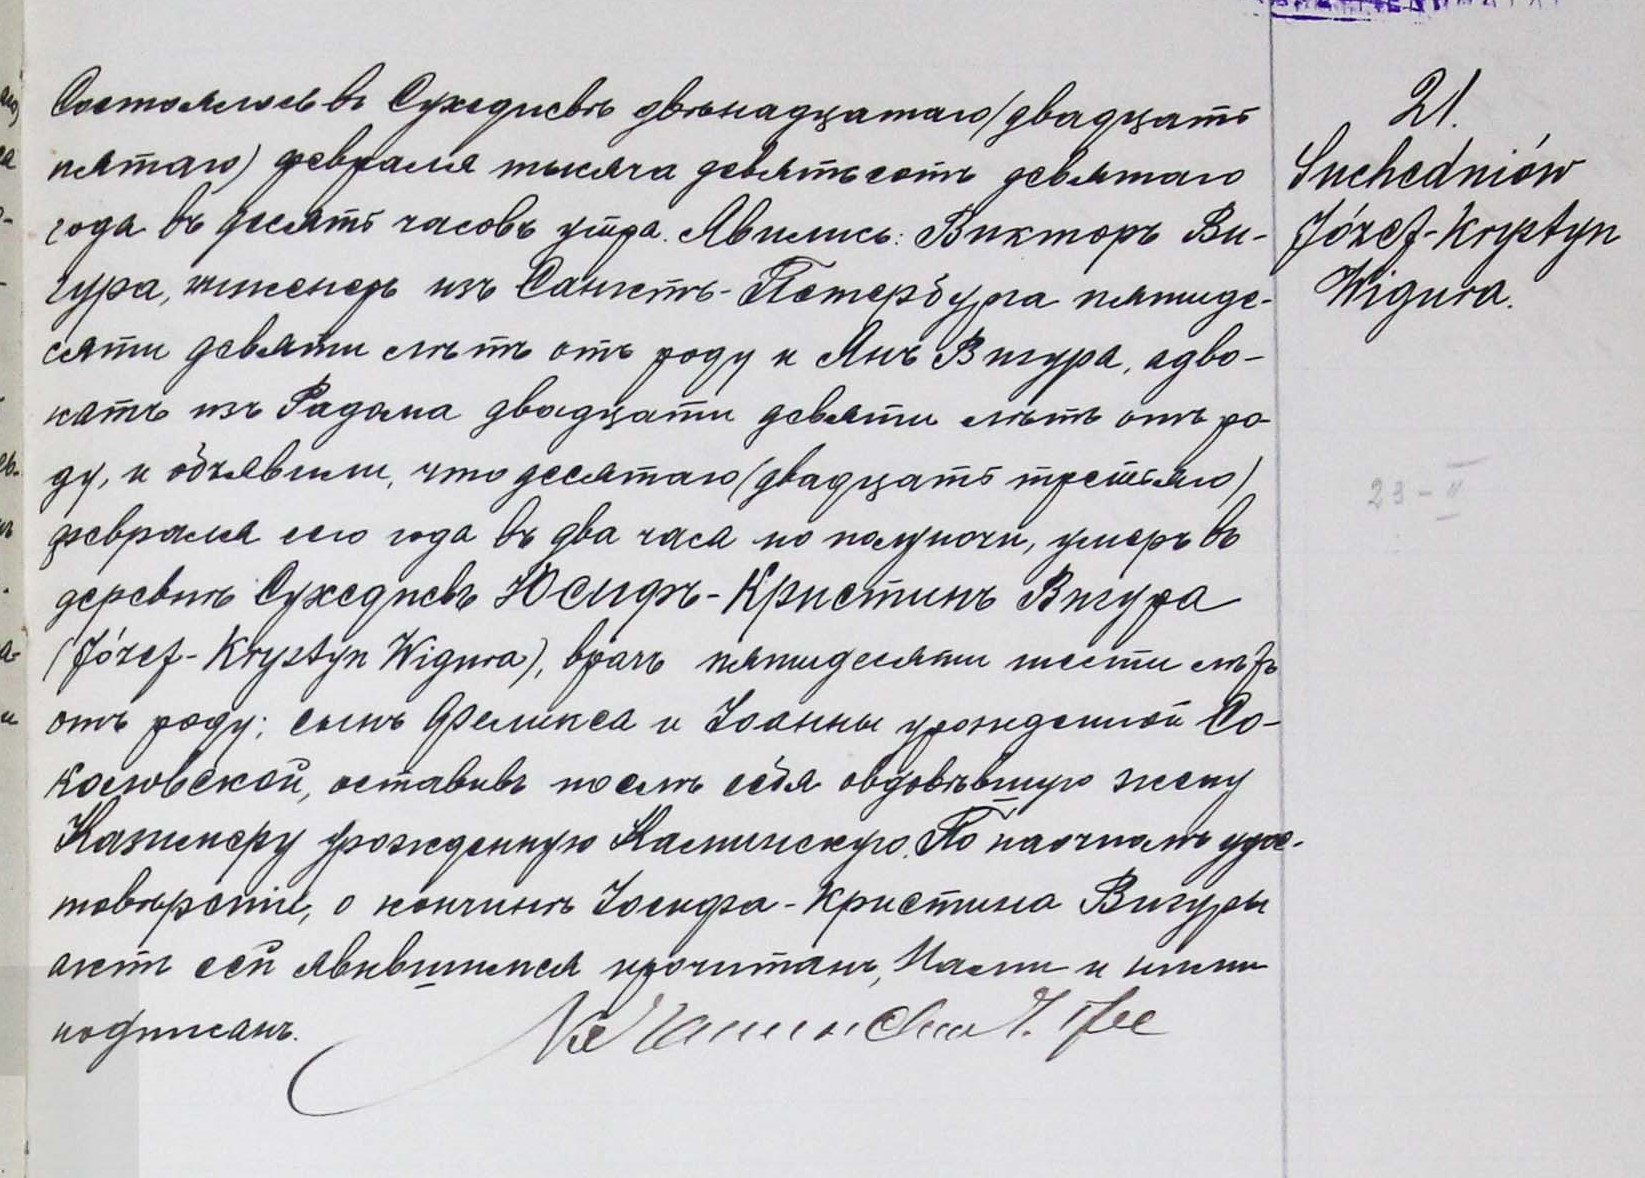 21.
Suchedniów
Józef-Krystyn
Wigura.
Состоялось въ Сухедневѣ двѣнадцатаго (двадцать
пятаго) февраля тысяча девятьсотъ девятаго
года въ десять часовъ утра. Явились: Викторъ Ви-
гура, инженеръ изъ Санктъ-Петербурга пятиде-
сяти девяти лѣтъ отъ роду и Янъ Вигура, адво-
катъ изъ Радома двадцати девяти лѣтъ отъ ро-
ду, и объявили, что десятаго (двадцать третьяго)
февраля сего года въ два часа по полуночи, умеръ въ
деревнѣ Сухедневъ Юсифъ-Кристинъ Вигура
(Józef-Krystyn Wigura), врачъ пятидесяти шести лѣтъ
отъ роду; сынъ Феликса и Іоанны урожденной Со-
коловской, оставивъ послѣ себя овдовѣвшую жену
Казимеру урожденную Каминскую. По наочномъ удос-
товѣреніи, о кончинѣ Іосифа-Кристина Вигуры
актъ сей явившимся прочитанъ, Нами и ними
подписанъ.
23-II